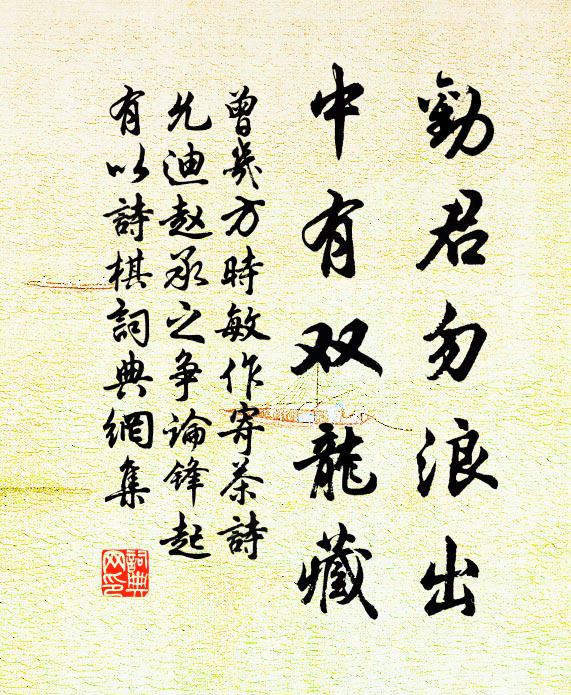 勸君勿浪出
中有双龍藏
曾幾方時敏作寄茶詩
允迪赵承之争論鋒起
有以詩棋詞典網集
詞典网印